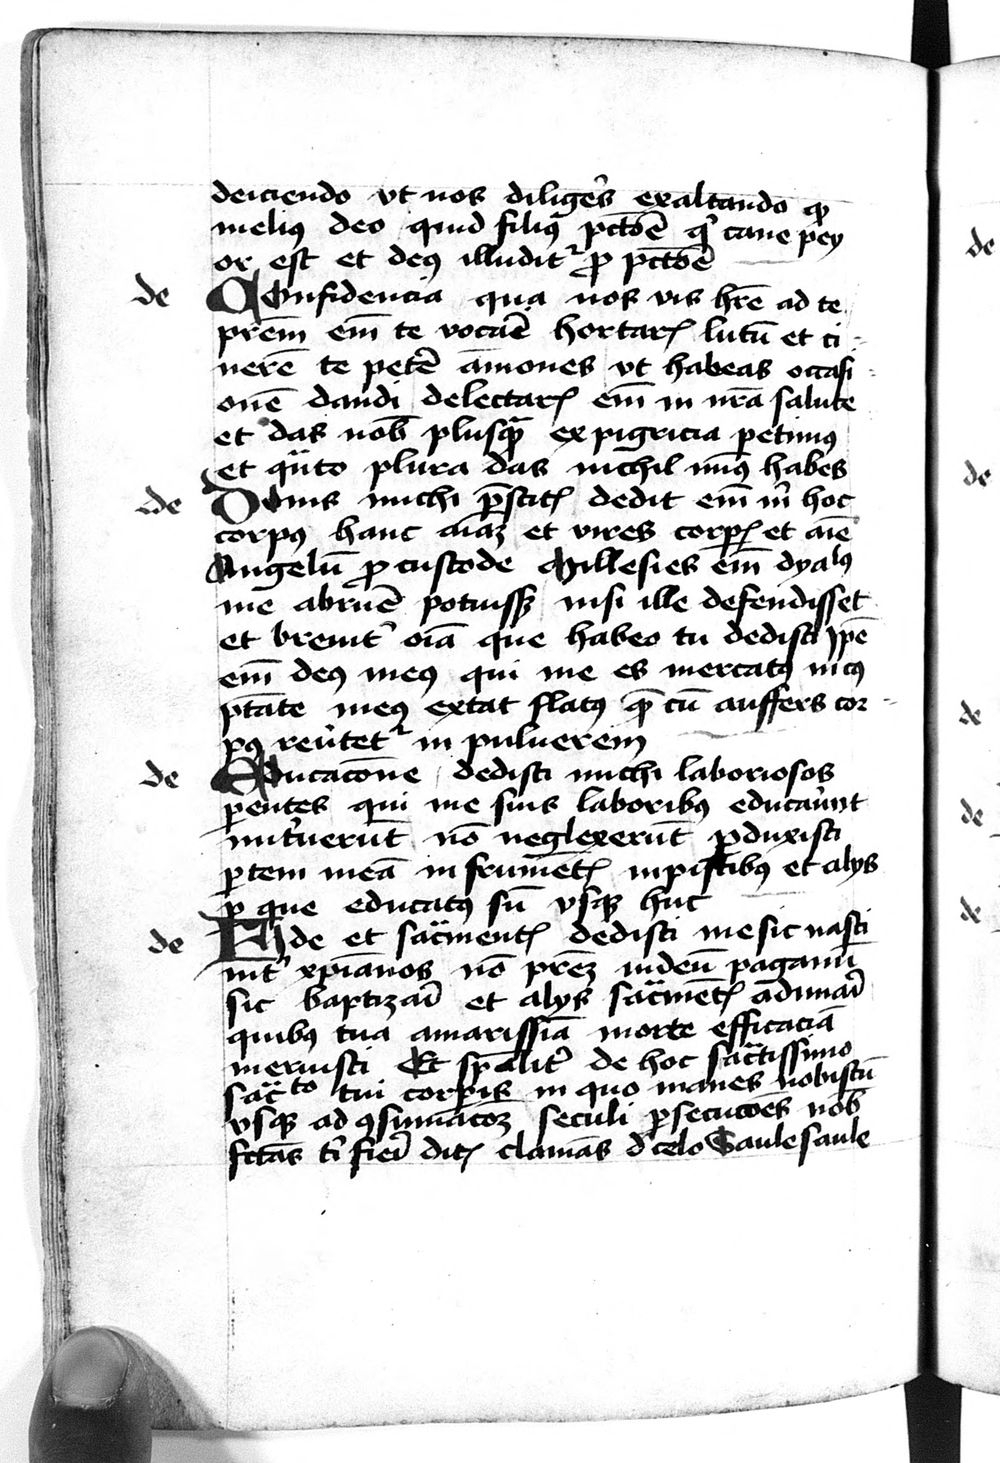 deiciendo vt nos diligēs exaltando ꝙ
melius deo quid filius pctorē qͥ cane pey
or est et deus illuditᷣ ꝓ pctorē
de Confidencia qua nos vis hr̄e ad te
pr̄em em̄ te vocaē hortaris lutū et ci
nerē te petē am̄ones vt habeas occasi
onē dandi delectaris em̄ in nr̄a salute
et das nob̄ plusq̄ ex pigricia petimus
et qͣnto plura das nichil minꝰ habes
de Domus michi p̄stitis dedit em̄ m̄ hoc
corpꝰ hanc aīaz et vires corpis et aīe
Angelū ꝓ custode Millesies em̄ dyabls
me abruē potuissꝫ nisi ille defendisset
et breuitᷣ oīa que habeo tu dedisti ip̄e
em̄ deꝰ meꝰ qui me es mercatꝰ
ptāte meꝰ extat flatꝰ q̄ cū auffers cor
pꝰ reūtetᷣ in puluerem
de Educacōne dedisti michi laboriosos
pentes qui me suis laboribꝰ educaūnt
nutͥuerūt nō neglexerūt ꝓduxisti
ptem meā in frumētis in piscibꝰ et alys
p que educatꝰ sū vsqꝫ huc
de Fide et sacͣmentis dedisti me sic nasci
int̄ xp̄ianos nō pr̄ez iudeū paganū
sic baptizaī et alys sacͣmētis adunaī
quibꝰ tua amarissīa morte efficaciā
meruisti Et sp̄alitͥ de hoc sacͣtissimo
sacͣto tui corpis in quo manes nobiscū
vsqꝫ ad ꝯsumacōꝫ seculi psecucōēs nob̄
fctās tͥ fieī dicis clamās d̄ celo Saule saule
de
de
de
de
de